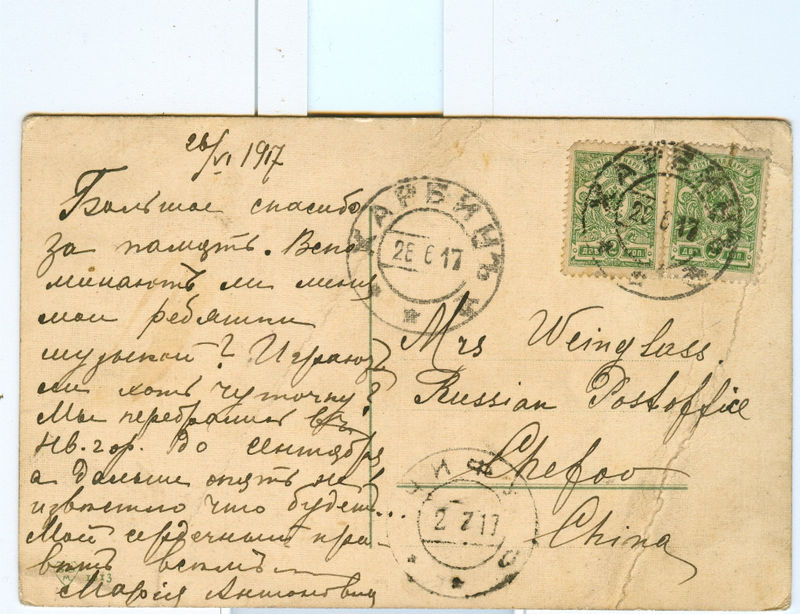 26/VI 1917
Большое спасибо
за память. Вспо-
минаютъ ли меня
мои ребятки
музыкой? Играютъ
ли хоть чуточку?
Мы перебрались въ
Нв. гор. до сентября
а дальше опять не-
извѣстно что будетъ...
Мой сердечный при-
вѣтъ всѣмъ
Мария Антоновна
1113
ХАРБИНЪ
26 6 17
ХАРБИНЪ
26 6 17
ДВѢ КОП.
ДВѢ КОП.
Mrs Weinglass.
Russian Postoffice
Chefoo
China
ЧИФУ
2 7 17